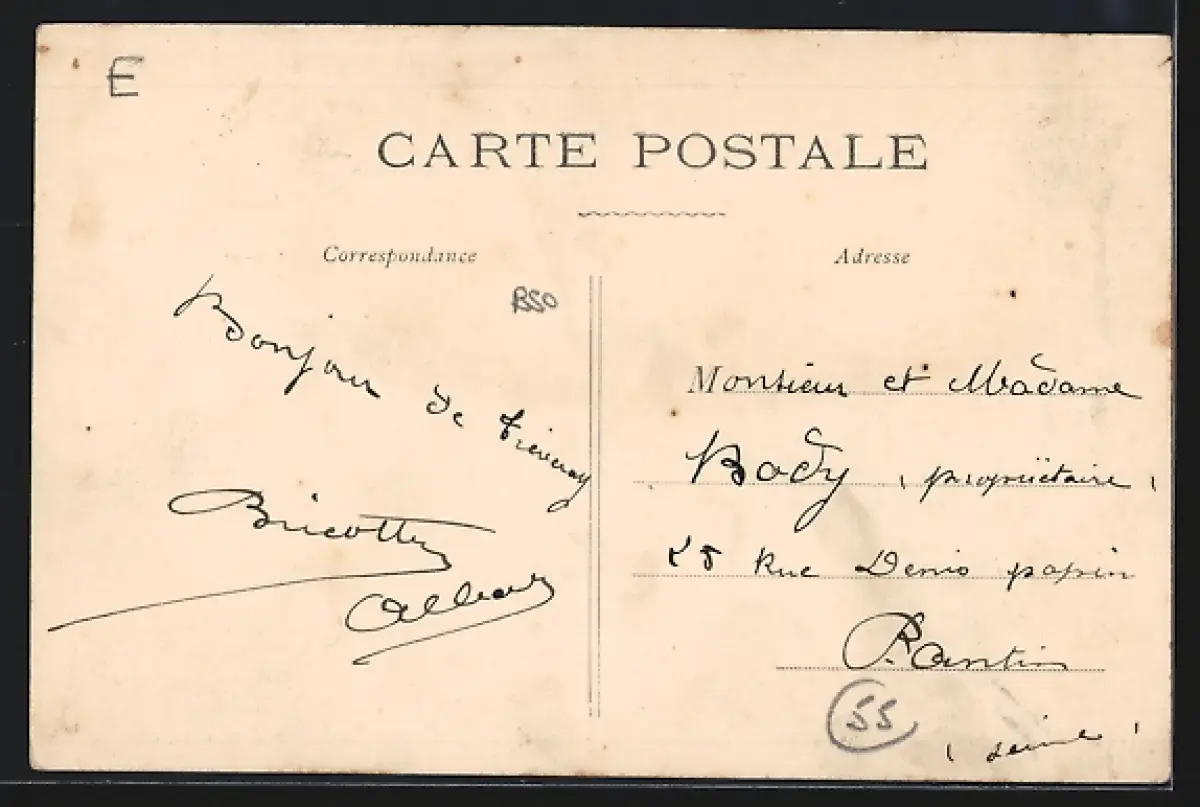 E
CARTE POSTALE
Correspondance
Adresse
BSO
Bonjour de Tréveray
Bricotte
Albert
Monsieur et Madame
Body, propriétaire,
28 Rue Denis papin
Pantin
55
(Seine)